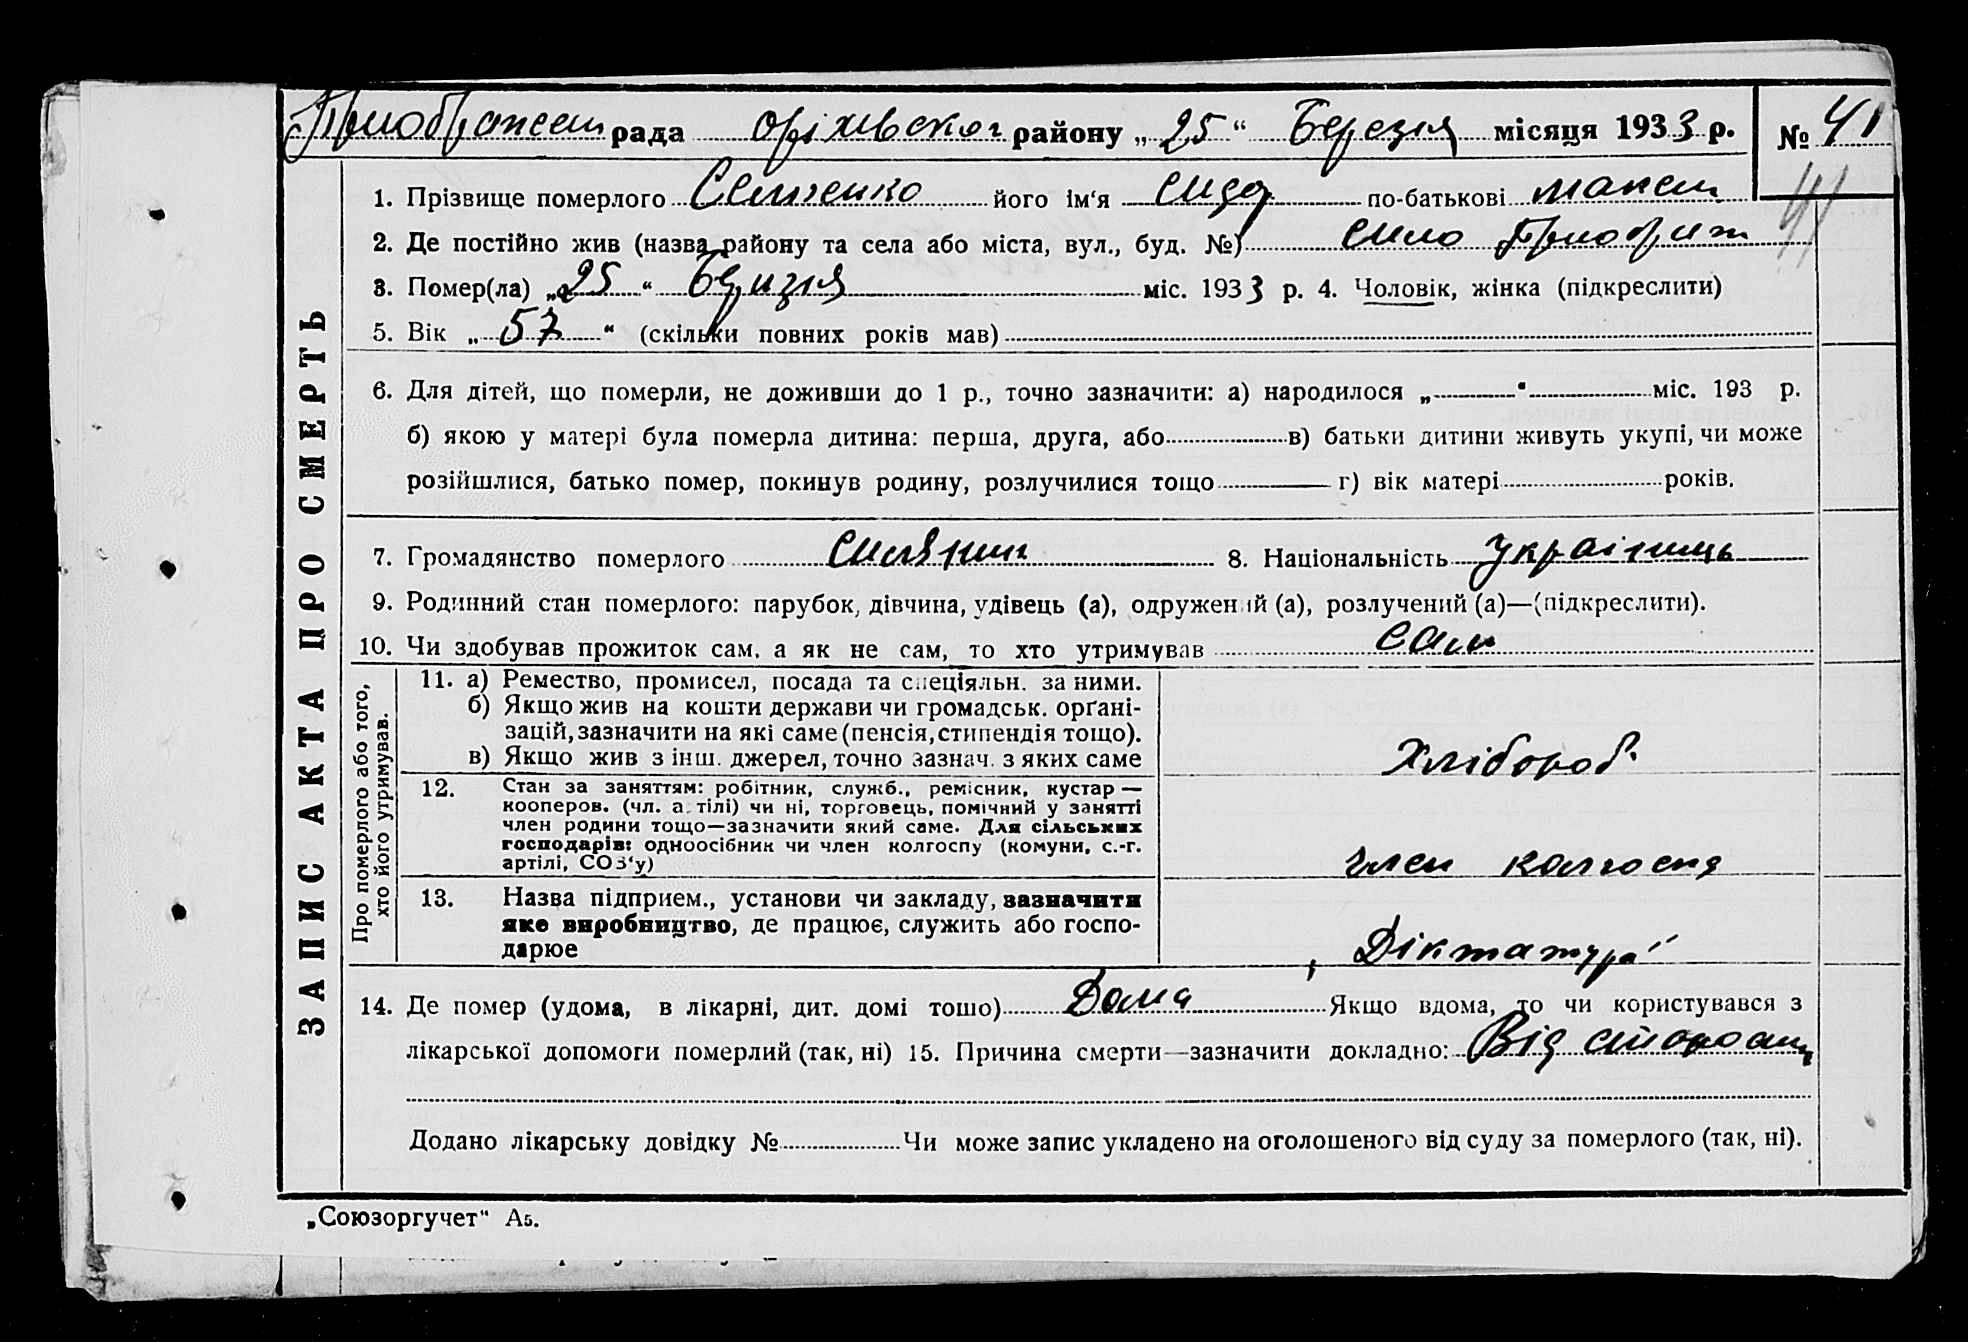 Приображен рада оріхівског району „25“ Березня місяця 1933 р. № 41
41
ЗАПИС АКТА ПРО СМЕРТЬ
1. Прізвище померлого Семченко його ім‘я Сидор по-батькові Максим
2. Де постійно жив (назва району та села або міста, вул., буд. №) село
3. Помер(ла) „25“ Беризня міс. 1933 р. 4. Чоловік, жінка (підкреслити)
5. Вік „57“ (скільки повних років мав)
6. Для дітей, що померли, не доживши до 1 р., точно зазначити: а) народилося „ “ міс. 193 р.
б) якою у матері була померла дитина: перша, друга, або в) батьки дитини живуть укупі, чи може
розійшлися, батько помер, покинув родину, розлучилися тощо г) вік матері років.
7. Громадянство померлого силянин 8. Національність українець
9. Родинний стан померлого: парубок, дівчина, удівець (а), одружений (а), розлучений (а)—(підкреслити).
10. Чи здобував прожиток сам, а як не сам, то хто утримував сам
Про померлого або того,
хто його утримував.
11. а) Ремество, промисел, посада та спеціяльн. за ними.
б) Якщо жив на кошти держави чи громадськ. орґані-
зацій, зазначити на які саме (пенсія, стипендія тощо).
в) Якщо жив з інш. джерел, точно зазнач. з яких саме
Хлібороб
12. Стан за заняттям: робітник, служб., ремісник, кустар —
кооперов. (чл. артілі) чи ні, торговець, помічний у занятті
член родини тощо—зазначити який саме. Для сільських
господарів: одноосібник чи член колгоспу (комуни, с.-г.
артілі, СОЗ‘у)
член колгоспу
13. Назва підприєм., установи чи закладу, зазначити
яке виробництво, де працює, служить або госпо-
дарює
, Діктатура“
14. Де помер (удома, в лікарні, дит. домі тошо) Дома Якщо вдома, то чи користувався з
лікарської допомоги померлий (так, ні) 15. Причина смерти—зазначити докладно: Від старости
Додано лікарську довідку № Чи може запис укладено на оголошеного від суду за померлого (так, ні).
„Союзоргучет“ А5.